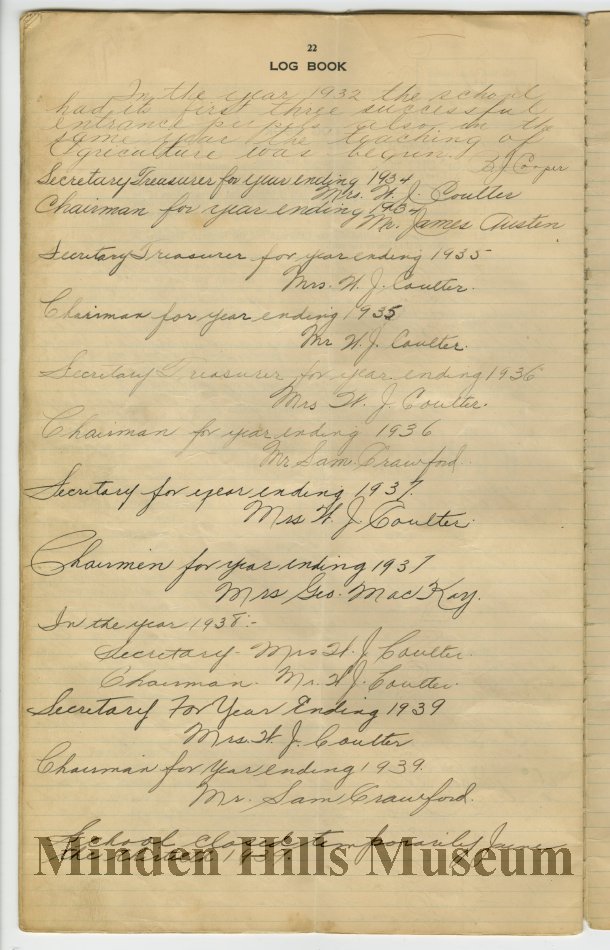 22
LOG BOOK
In the year 1932 the school
had its first three successful
entrance pupils, also in the
same year the teaching of
Agriculture was begun.
D J Cooper
Secretary Treasurer for year ending 1934
Mrs. W. J. Coulter
Chairman for year ending 1934
Mr. James Austen
Secretary Treasurer for year ending 1935
Mrs. W. J. Coulter.
Chairman for year ending 1935
Mr W. J. Coulter.
Secretary Treasurer for year ending 1936
Mrs W. J. Coulter.
Chairman for year ending 1936
Mr Sam Crawford.
Secretary for year ending 1937.
Mrs W. J. Coulter.
Chairmen for year ending 1937
Mrs Geo. MacKay.
In the year 1938:-
Secretary - Mrs W. J. Coulter.
Chairman. Mr. W J. Coulter.
Secretary For Year Ending 1939
Mrs. W. J. Coulter
Chairman for Year ending 1939.
Mr. Sam Crawford.
School closed temporarily June
1939.
Minden Hills Museum